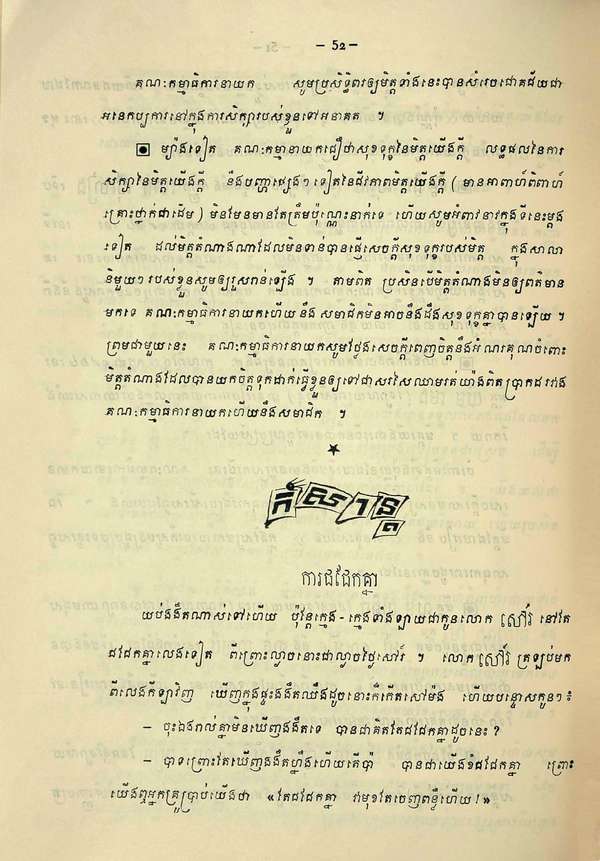 – 52 –
គណៈកម្មាធិការនាយក សូមប្រសិទ្ធិពរឲ្យមិត្តទាំងនេះបានសំរេចជោគជ័យជា
អនេកប្បការនៅក្នុងការសិក្សារបស់ខ្លួនទៅអនាគត ។
ម្យ៉ាងទៀត គណៈកម្មានាយកជឿថាសុខទុក្ខនៃមិត្តយើងក្តី លទ្ធផលនៃការ
សិក្សានៃមិត្តយើងក្តី នឹងបញ្ហាផ្សេងៗទៀតនៃជីវភាពមិត្តយើងក្តី ( មានអាពាហ៍ពិពាហ៍
គ្រោះថ្នាក់ជាដើម ) មិនមែនមានតែត្រឹមប៉ុណ្ណេះនាក់ទេ ហើយសូមអំពាវនាវក្នុងទីនេះម្តង
ទៀត ដល់មិត្តតំណាងណាដែលមិនទាន់បានផ្ញើសេចក្តីសុខទុក្ខរបស់មិត្ត ក្នុងសាលា
និមួយៗរបស់ខ្លួនសូមឲ្យរួសរាន់ឡើង ។ តាមពិត ប្រសិនបើមិត្តតំណាងមិនឲ្យពត៌មាន
មកទេ គណៈកម្មាធិការនាយកហើយនឹង សមាជិកមិនអាចនឹងដឹងសុខទុក្ខគ្នាបានឡើយ ។
ព្រមជាមួយនេះ គណៈកម្មាធិការនាយកសូមថ្លែងសេចក្តីពេញចិត្តនឹងអំណរគុណចំពោះ
មិត្តតំណាងដែលបានយកចិត្តទុកដាក់ធ្វើខ្លួនឲ្យទៅជាសរសៃឈាមរត់យ៉ាងពិតប្រាកដរវាង
គណៈកម្មាធិការនាយកហើយនឹងសមាជិក ។
កំសាន្ត
ការជជែកគ្នា
យប់ងងឹតណាស់ទៅហើយ ប៉ុន្តែក្មេង - ក្មេងទាំងឡាយជាកូនលោក សៅរ៍ នៅតែ
ជជែកគ្នាលេងទៀត ពីព្រោះល្ងាចនោះជាល្ងាចថ្ងៃសៅរ៍ ។ លោក សៅរ៍ ត្រឡប់មក
ពីលេងកីឡាវិញ ឃើញក្នុងផ្ទះងងឹតឈឹងដូចនោះក៏កើតសៅម៉ង ហើយបន្ទោសកូនៗ ៖
– ចុះឯងរាល់គ្នាមិនឃើញងងឹតទេ បានជាគិតតែជជែកគ្នាដូចនេះ ?
– បាទព្រោះតែឃើញងងឹតហ្នឹងហើយតើប៉ា បានជាយើងខំជជែកគ្នា ព្រោះ
យើងឮអ្នកគ្រូប្រាប់យើងថា « តែជជែកគ្នា វាមុខតែចេញពន្លឺហើយ ! »